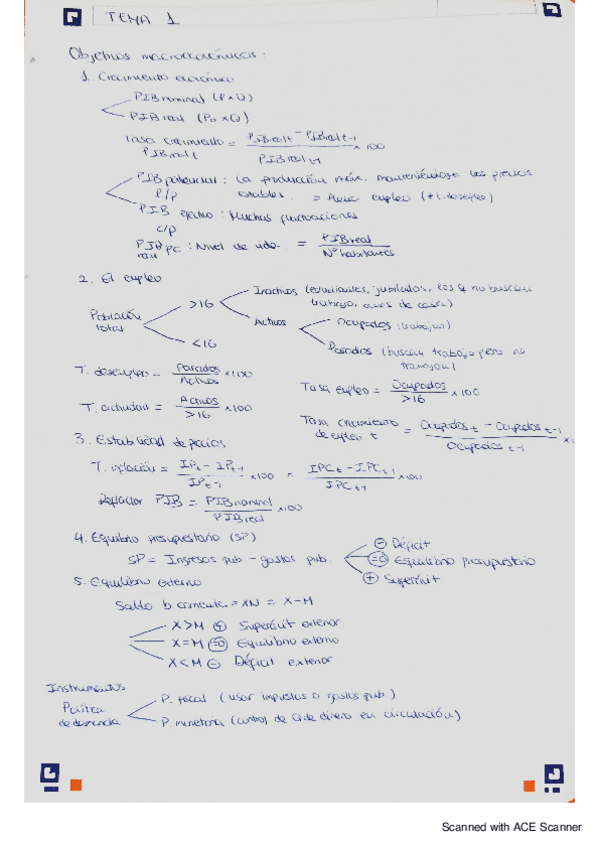 TEMA 1
Objetivos macroeconómicos:
1. Crecimiento económico
PIB nominal (P x Q)
PIB real (P₀ x Q)
Tasa crecimiento PIB real t = (PIB real t - PIB real t-1) / PIB real t-1 x 100
PIB potencial: La producción máx, manteniéndose los precios
l/p estables. = Pleno empleo (
PIB efectivo: Muchas fluctuaciones
c/p
PIB real PC: Nivel de vida. = PIB real / Nº habitantes
2. El empleo
Población total
>16
Inactivos (estudiantes, jubilados, los q no buscan
trabajo, amas de casa)
Activos
Ocupados (trabajan)
Parados (buscan trabajo pero no
trabajan)
<16
T. desempleo = Parados / Activos x 100
Tasa empleo = Ocupados / >16 x 100
T. actividad = Activos / >16 x 100
Tasa crecimiento de empleo t = (Ocupados t - Ocupados t-1) / Ocupados t-1 x
3. Estabilidad de precios
T. inflación = (IPt - IPt-1) / IPt-1 x 100 = (IPCt - IPCt-1) / IPCt-1 x 100
Deflactor PIB = PIB nominal / PIB real x 100
4. Equilibrio presupuestario (SP)
SP = Ingresos pub - gastos pub.
- Déficit
=0 Equilibrio presupuestario
+ Superávit
5. Equilibrio externo
Saldo b comercial = XN = X-M
X>M + Superávit exterior
X=M =0 Equilibrio externo
X<M - Déficit exterior
Instrumentos
Política de demanda
P. fiscal (usar impuestos o gastos pub)
P. monetaria (control de Q de dinero en circulación)
Scanned with ACE Scanner